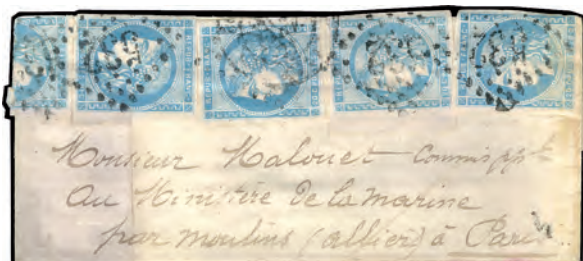 532
Monsieur Malouet Commis ppl
au Ministère de la marine
par moulins (allier) à Paris